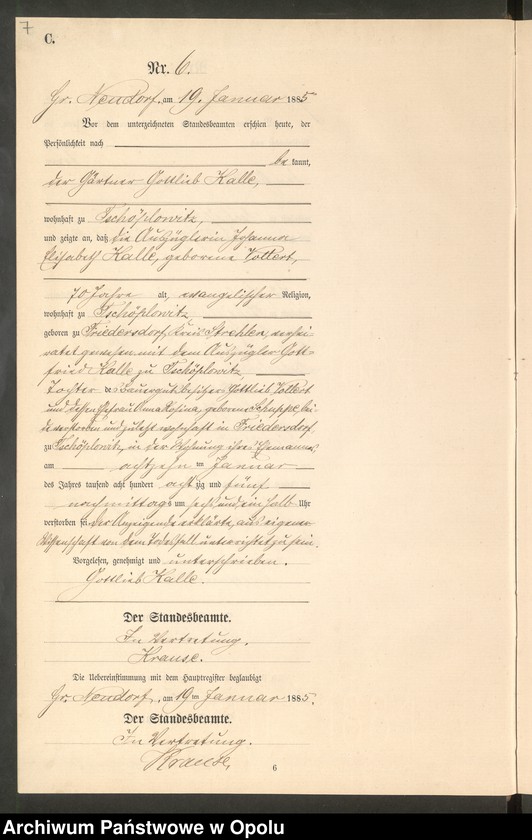 7
C.
Nr. 6.
Gr. Neudorf, am 19. Januar 1885
Vor dem unterzeichneten Standesbeamten erschien heute, der
Persönlichkeit nach
be kannt,
der Gärtner Gottlieb Kalle,
wohnhaft zu Tschöplowitz,
und zeigte an, daß die Auszüglerin Johanna
Elisabeth Kalle, geborene Vollert,
70 Jahre alt, evangelischer Religion,
wohnhaft zu Tschöplowitz
geboren zu Friedersdorf, Kreis Strehlen, verhei-
ratet gewesen mit dem Auszügler Gott-
fried Kalle zu Tschöplowitz
Tochter des Bauergutsbesitzer Gottlieb Vollert
und dessen Ehefrau Anna Rosina, geborene Schuppe bei-
de verstorben und zuletzt wohnhaft in Friedersdorf
zu Tschöplowitz, in der Wohnung ihres Ehemannes
am achtzehn ten Januar
des Jahres tausend acht hundert acht zig und fünf
nachmittags um sechs und ein halb Uhr
verstorben sei, der Anzeigende erklärte, aus eigener
Wissenschaft von dem Todesfall unterrichtet zu sein.
Vorgelesen, genehmigt und unterschrieben.
Gottlieb Kalle.
Der Standesbeamte.
In Vertretung.
Krause.
Die Uebereinstimmung mit dem Hauptregister beglaubigt
Gr. Neudorf, am 19ten Januar 1885.
Der Standesbeamte.
In Vertretung.
Krause.
6
Archiwum Państwowe w Opolu